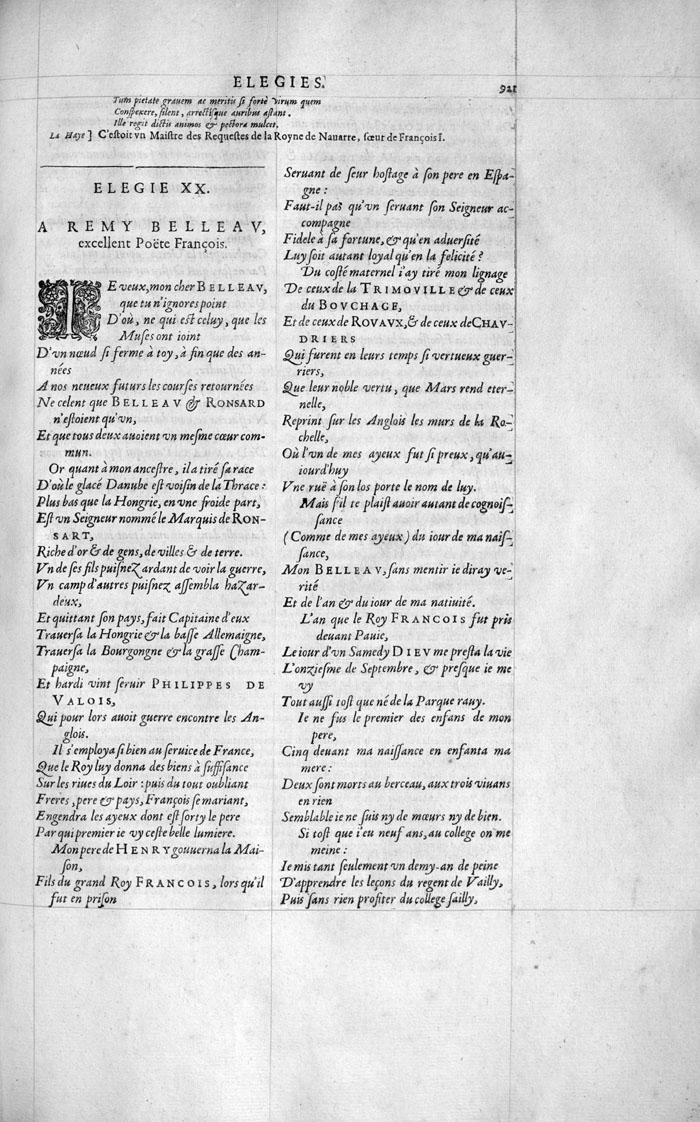 ELEGIES.
921
Tum pietate grauem ac meritis si fortè virum quem
Conspexere, silent, arrectisque auribus astant.
Ille regit dictis animos & pectora mulcet,
La Haye] C'estoit vn Maistre des Requestes de la Royne de Nauarre, sœur de François I.
ELEGIE XX.
A REMY BELLEAV,
excellent Poëte François.
IE veux, mon cher BELLEAV,
que tu n'ignores point
D'où, ne qui est celuy, que les
Muses ont ioint
D'vn nœud si ferme à toy, à fin que des an-
nées
A nos neueux futurs les courses retournées
Ne celent que BELLEAV & RONSARD
n'estoient qu'vn,
Et que tous deux auoient vn mesme cœur com-
mun.
Or quant à mon ancestre, il a tiré sa race
D'où le glacé Danube est voisin de la Thrace:
Plus bas que la Hongrie, en vne froide part,
Est vn Seigneur nommé le Marquis de RON-
SART,
Riche d'or & de gens, de villes & de terre.
Vn de ses fils puisnez ardant de voir la guerre,
Vn camp d'autres puisnez assembla hazar-
deux,
Et quittant son pays, fait Capitaine d'eux
Trauersa la Hongrie & la basse Allemaigne,
Trauersa la Bourgongne & la grasse Cham-
paigne,
Et hardi vint seruir PHILIPPES DE
VALOIS,
Qui pour lors auoit guerre encontre les An-
glois.
Il s'employa si bien au seruice de France,
Que le Roy luy donna des biens à suffisance
Sur les riues du Loir: puis du tout oubliant
Freres, pere & pays, François se mariant,
Engendra les ayeux dont est sorty le pere
Par qui premier ie vy ceste belle lumiere.
Mon pere de HENRY gouuerna la Mai-
son,
Fils du grand Roy FRANCOIS, lors qu'il
fut en prison
Seruant de seur hostage à son pere en Espa-
gne:
Faut-il pas qu'vn seruant son Seigneur ac-
compagne
Fidele à sa fortune, & qu'en aduersité
Luy soit autant loyal qu'en la felicité?
Du costé maternel i'ay tiré mon lignage
De ceux de la TRIMOVILLE & de ceux
du BOVCHAGE,
Et de ceux de ROVAVX, & de ceux de CHAV-
DRIERS
Qui furent en leurs temps si vertueux guer-
riers,
Que leur noble vertu, que Mars rend eter-
nelle,
Reprint sur les Anglois les murs de la Ro-
chelle,
Où l'vn de mes ayeux fut si preux, qu'au-
iourd'huy
Vne ruë à son los porte le nom de luy.
Mais s'il te plaist auoir autant de cognois-
sance
(Comme de mes ayeux) du iour de ma nais-
sance,
Mon BELLEAV, sans mentir ie diray ve-
rité
Et de l'an & du iour de ma natiuité.
L'an que le Roy FRANCOIS fut pris
deuant Pauie,
Le iour d'vn Samedy DIEV me presta la vie
L'onziesme de Septembre, & presque ie me
vy
Tout aussi tost que né de la Parque rauy.
Ie ne fus le premier des enfans de mon
pere,
Cinq deuant ma naissance en enfanta ma
mere:
Deux sont morts au berceau, aux trois viuans
en rien
Semblable ie ne suis ny de mœurs ny de bien.
Si tost que i'eu neuf ans, au college on me
meine:
Ie mis tant seulement vn demy-an de peine
D'apprendre les leçons du regent de Vailly,
Puis sans rien profiter du college sailly,